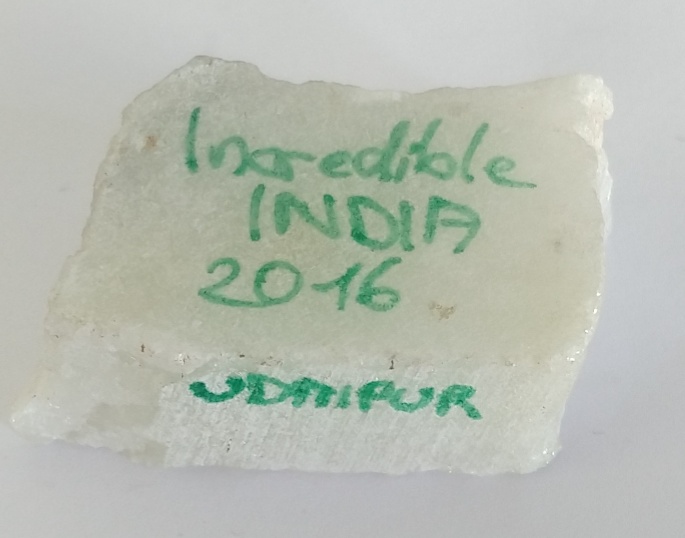 Incredible
INDIA
2016
UDAIPUR